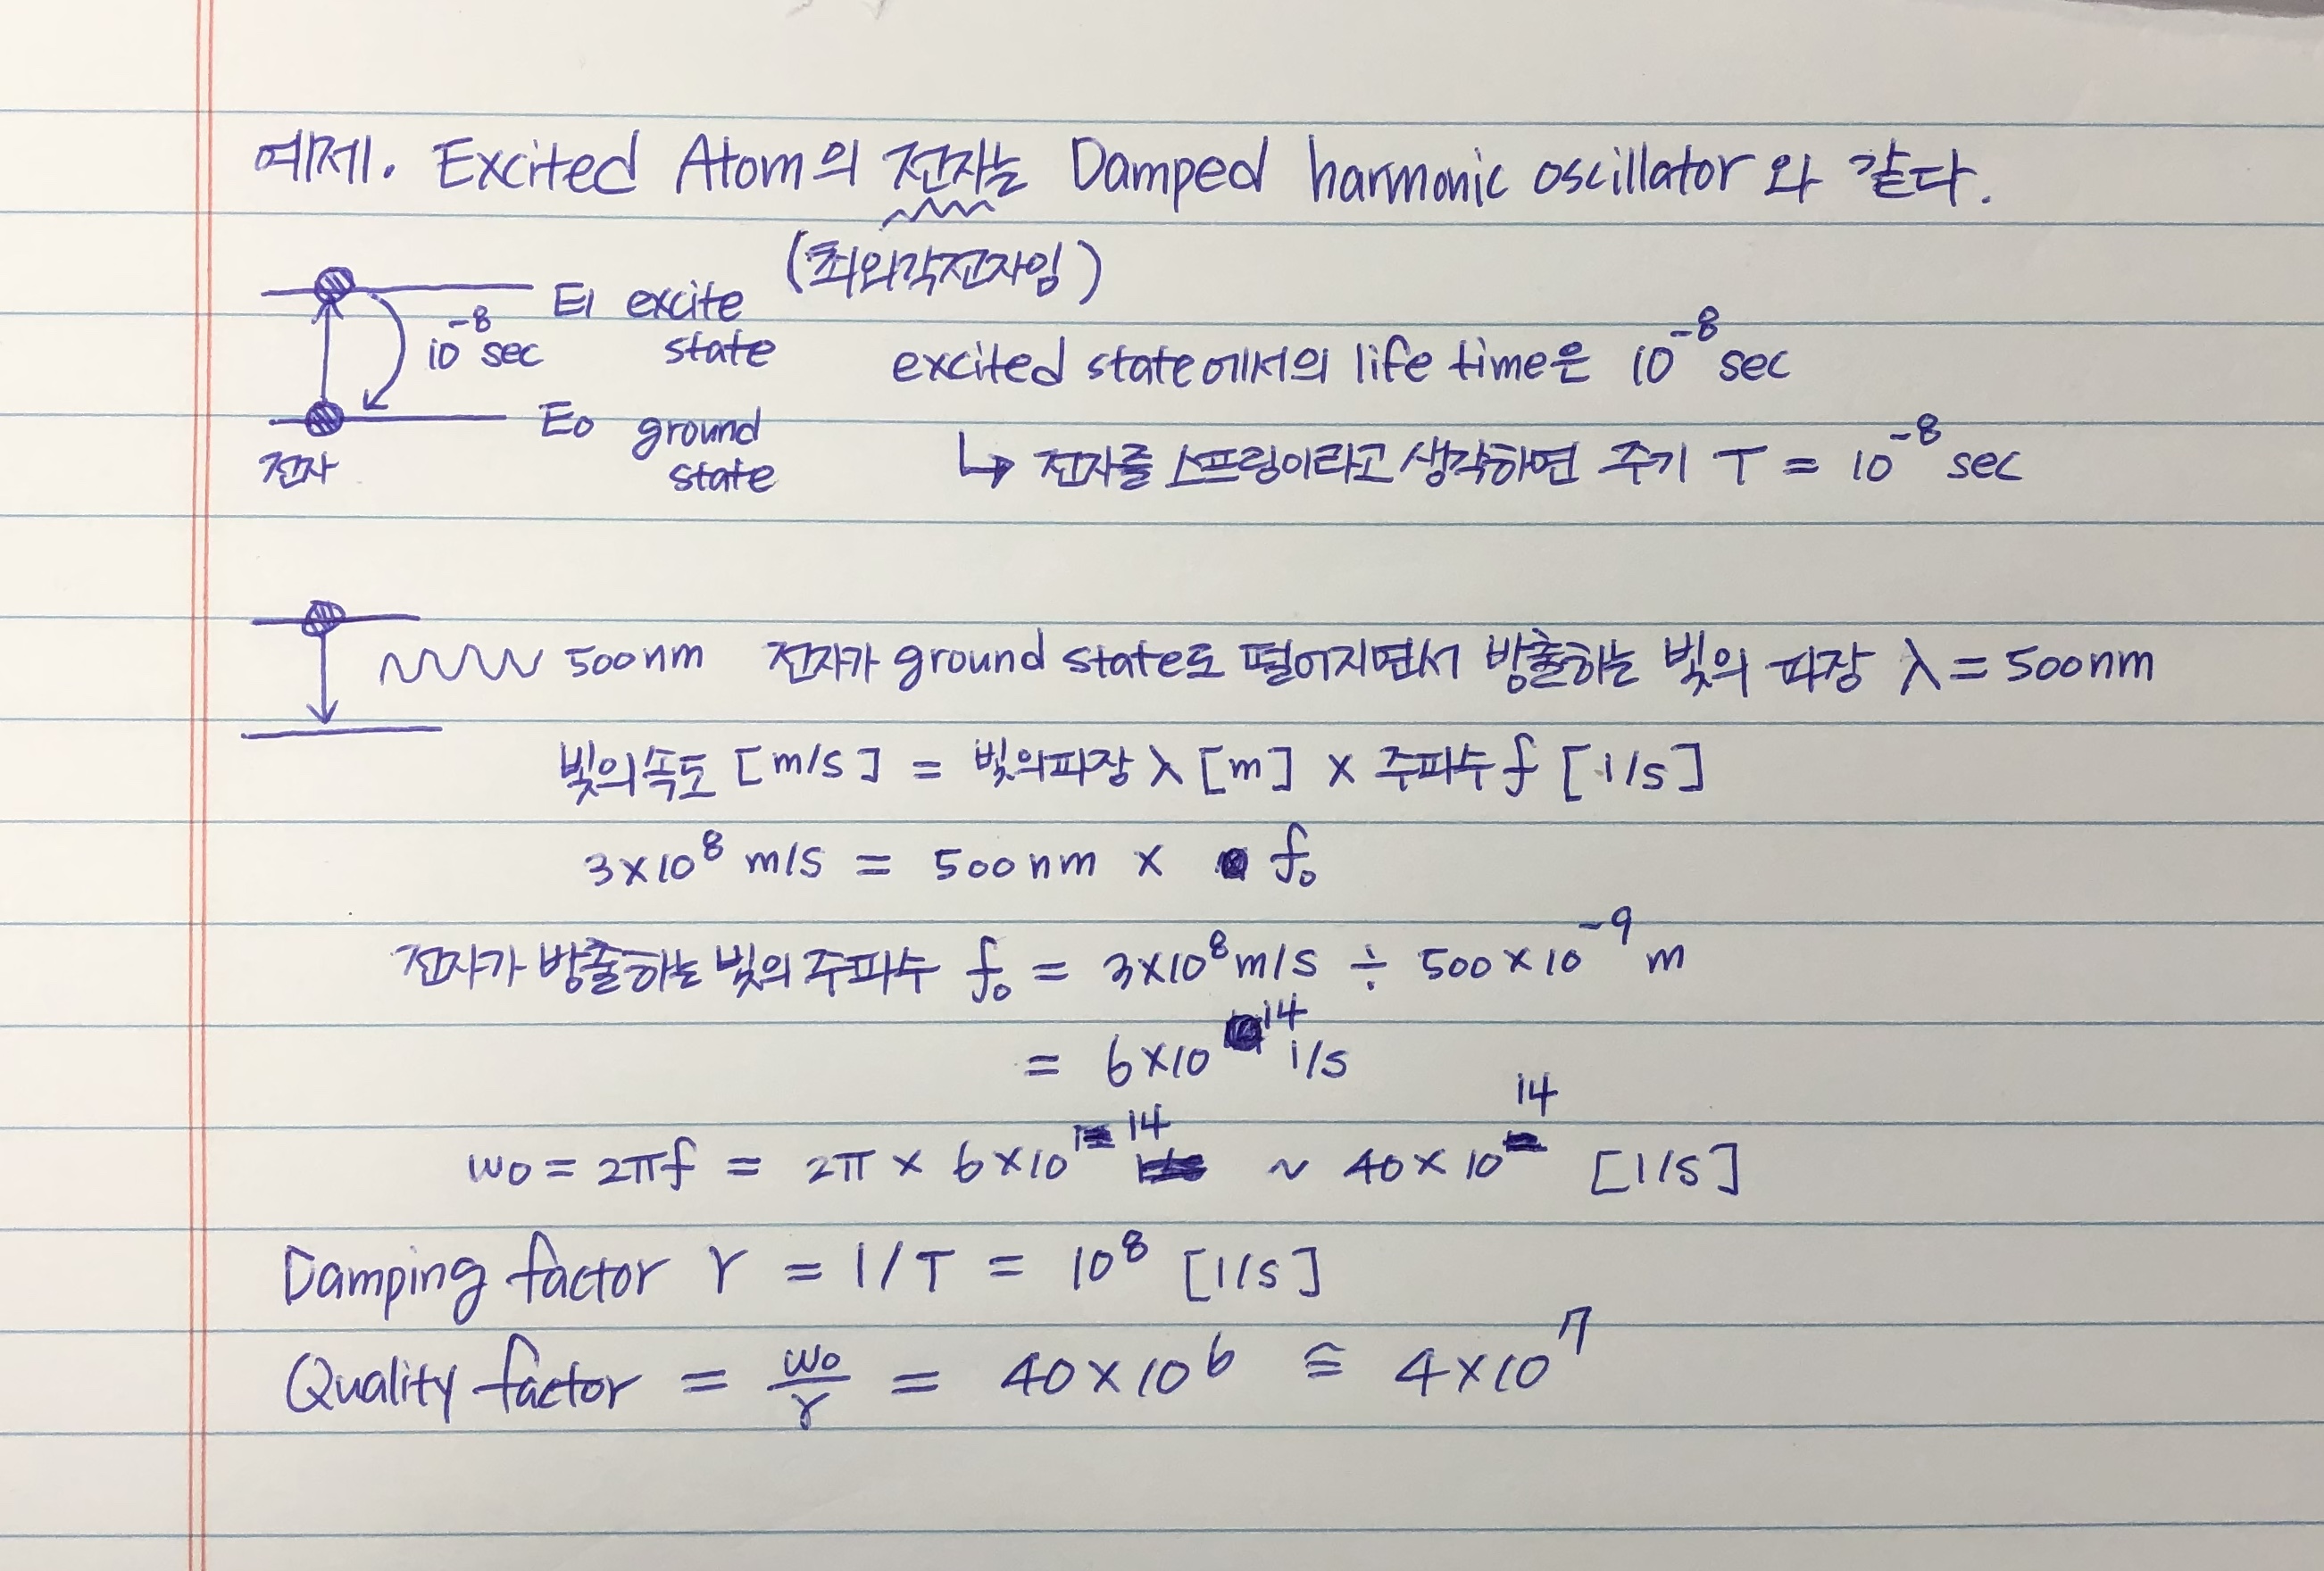 예제. Excited Atom의 전자는 Damped harmonic oscillator와 같다.
(최외각전자임)
E1 excite state
10^-8 sec
excited state에서의 life time은 10^-8 sec
E0 ground state
전자
↳ 전자를 스프링이라고 생각하면 주기 T = 10^-8 sec
500nm 전자가 ground state로 떨어지면서 방출하는 빛의 파장 λ = 500nm
빛의속도 [m/s] = 빛의파장 λ [m] × 주파수 f [1/s]
3×10^8 m/s = 500nm × f₀
전자가 방출하는 빛의 주파수 f₀ = 3×10^8 m/s ÷ 500×10^-9 m
= 6×10^14 1/s
w0 = 2πf = 2π × 6×10^14 ~ 40×10^14 [1/s]
Damping factor r = 1/T = 10^8 [1/s]
Quality factor = w0/r = 40×10^6 ≅ 4×10^7